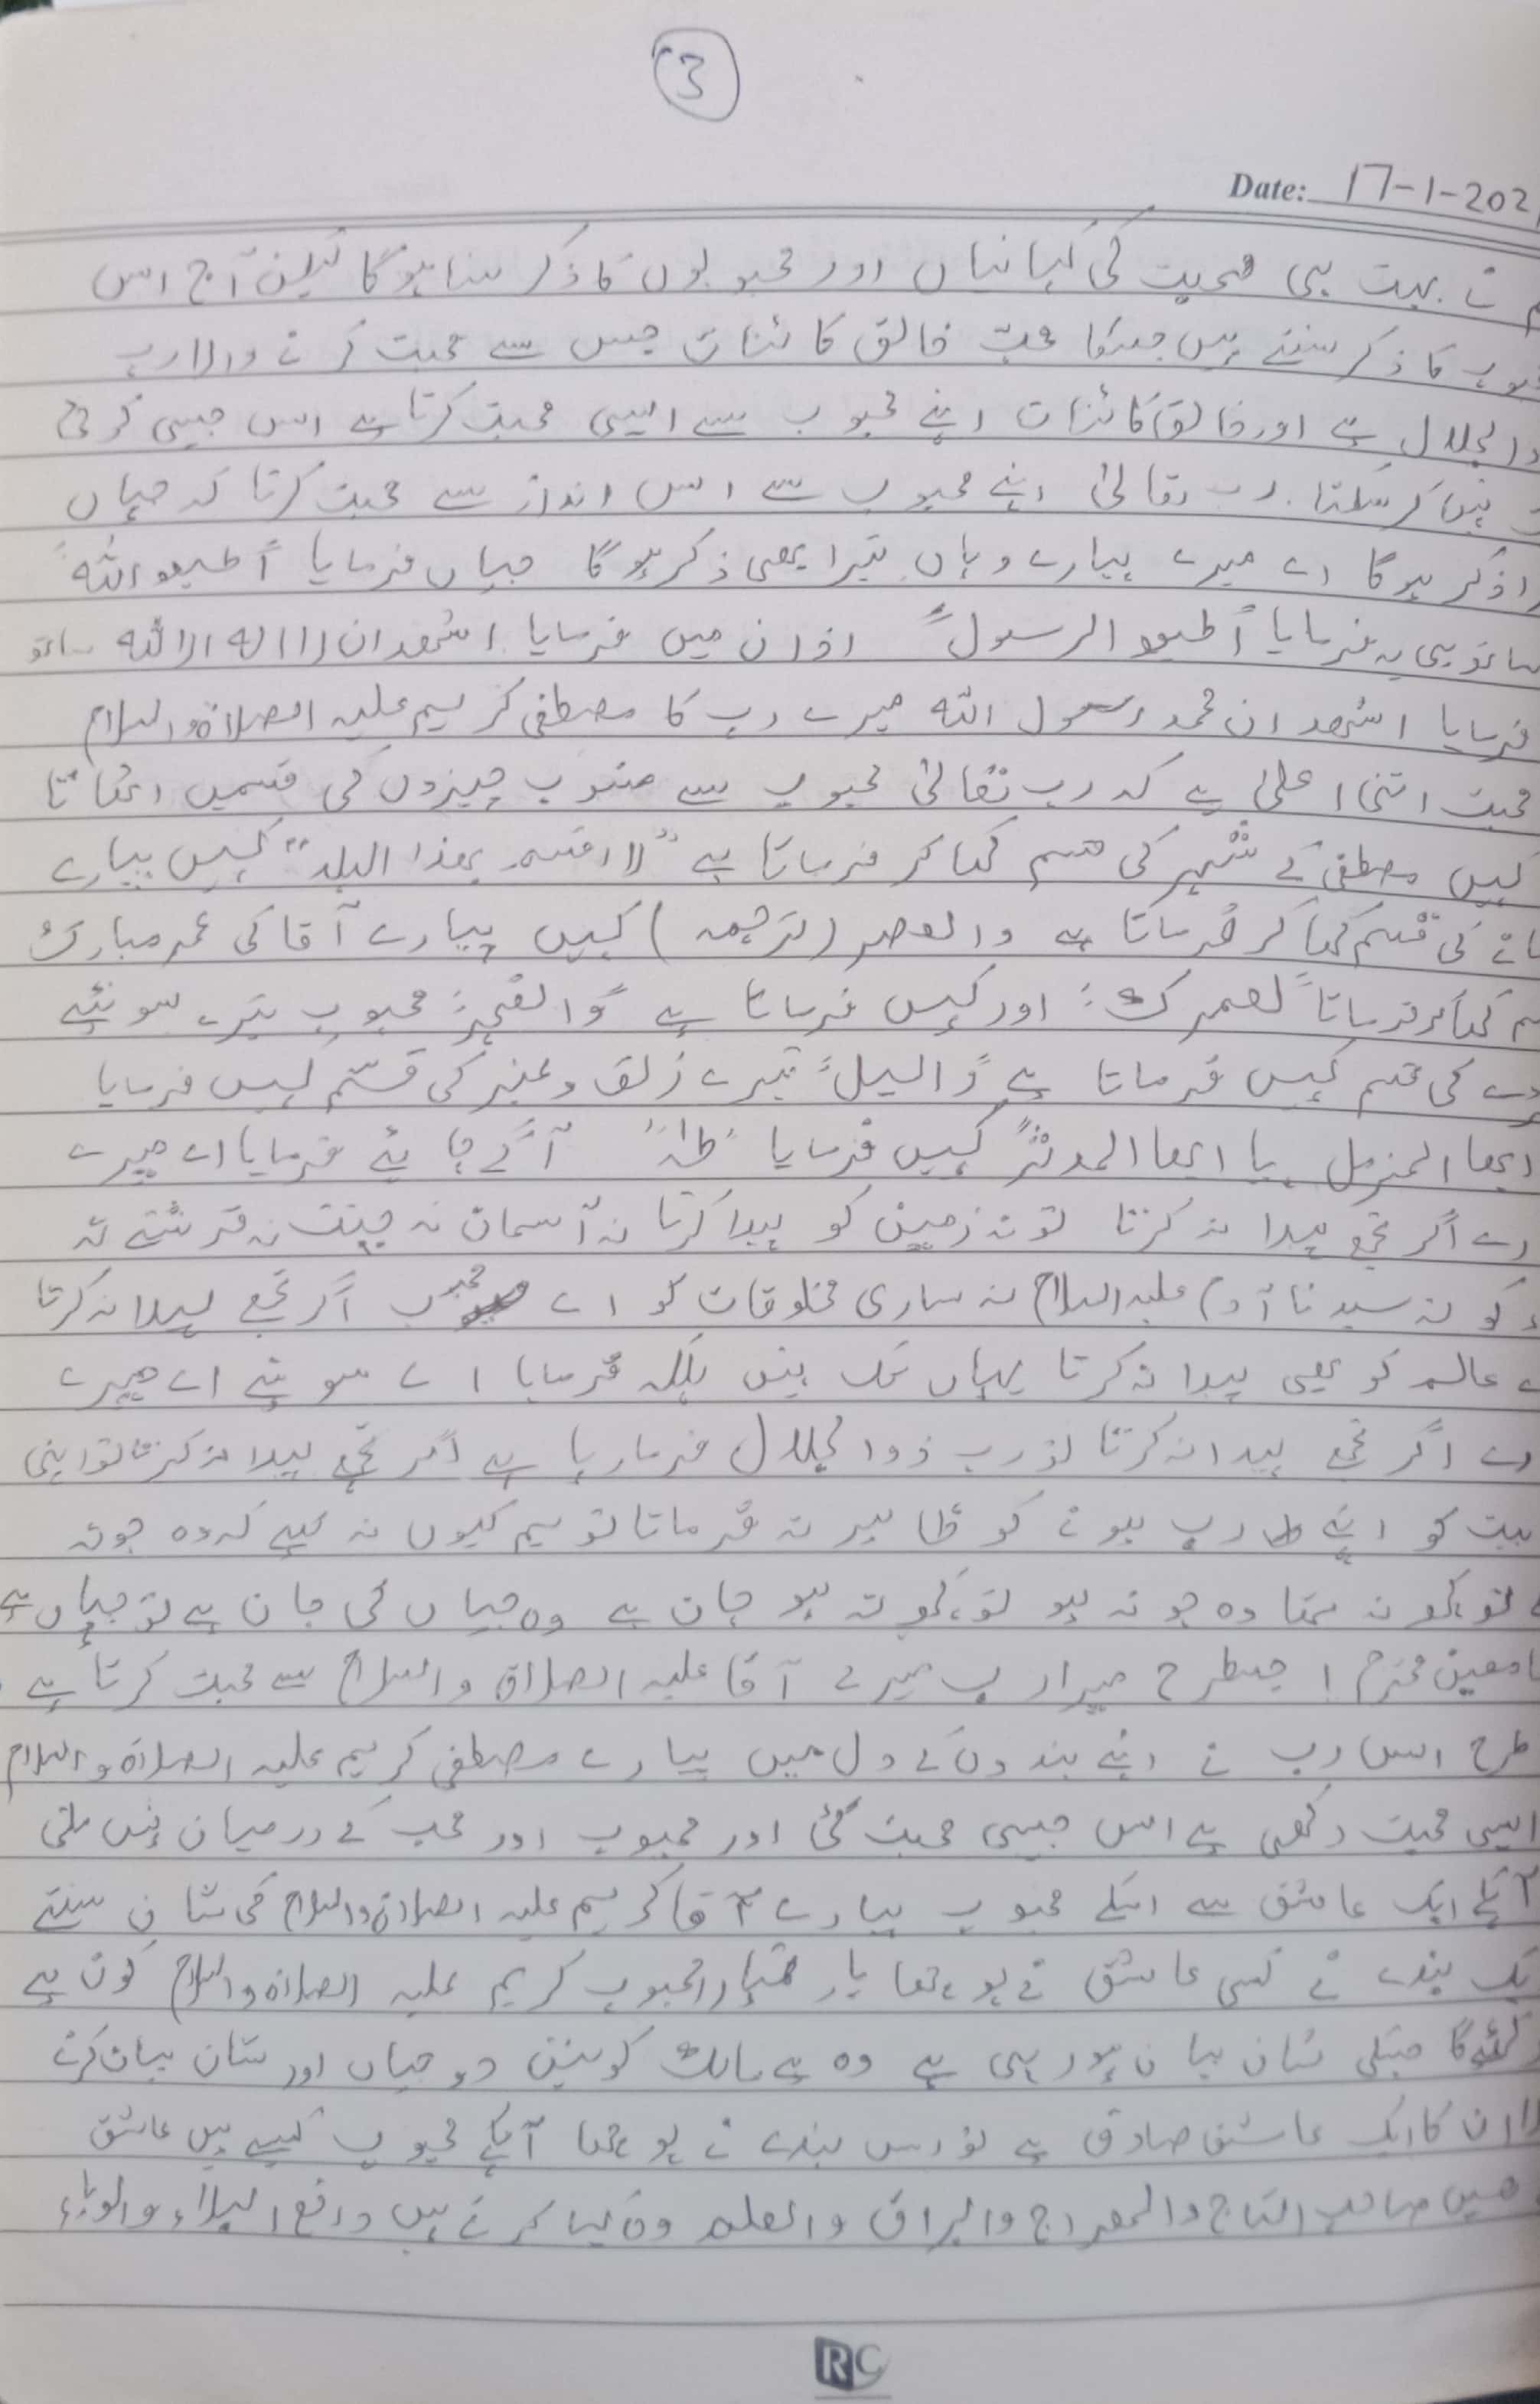 3
Date: 17-1-202
نے بہت ہی محبت کی کہانیاں اور محبوبوں کا ذکر سنا ہوگا لیکن آج اس
کا ذکر سنتے ہیں جسکا محب خالق کائنات جس سے محبت کرنے والا رب
والجلال ہے اور خالق کائنات اپنے محبوب سے ایسی محبت کرتا ہے اس جیسی کوئی
نہیں کر سکتا۔ رب تعالیٰ اپنے محبوب سے اس انداز سے محبت کرتا کہ جہاں
ذکر ہوگا اے میرے پیارے وہاں تیرا بھی ذکر ہوگا جہاں فرمایا "اطیعو اللہ"
ساتھ ہی یہ فرمایا "اطیعو الرسول" اذان میں فرمایا اشھدان لا الہ الا اللہ ساتھ
فرمایا اشھد ان محمد رسول اللہ میرے رب کا مصطفی کریم علیہ الصلاۃ والسلام
محبت اتنی اعلیٰ ہے کہ رب تعالیٰ محبوب سے منسوب چیزوں کی قسمیں اٹھاتا
کہیں مصطفی کے شہر کی قسم کھا کر فرماتا ہے "لا اقسم بھذا البلد" کہیں پیارے
کی قسم کھا کر فرماتا ہے والعصر (ترجمہ) کہیں پیارے آقا کی عمر مبارک
کھا کر فرماتا "لعمرک" اور کہیں فرماتا ہے "والفجر" محبوب تیرے سوہنے
کی قسم کہیں فرماتا ہے "والیل" تیرے زلف وعنبر کی قسم کہیں فرمایا
ایھا المزمل یا ایھا المدثر" کہیں فرمایا "طہٰ" آگے جائیے فرمایا اے میرے
اگر تجھے پیدا نہ کرتا تو نہ زمین کو پیدا کرتا نہ آسمان نہ جنت نہ فرشتے نہ
کو نہ سیدنا آدم علیہ السلام نہ ساری مخلوقات کو اے محبوب اگر تجھے پیدا نہ کرتا
عالم کو بھی پیدا نہ کرتا یہاں تک نہیں بلکہ فرمایا اے سوہنے اے میرے
اگر تجھے پیدا نہ کرتا تو رب ذوالجلال فرما رہا ہے اگر تجھے پیدا نہ کرتا تو اپنی
کو اپنے رب ہونے کو ظاہر نہ فرماتا تو ہم کیوں نہ کہیے کہ وہ جو نہ
تو کچھ نہ تھا وہ جو نہ ہو تو کچھ نہ ہو جان ہے وہ جہاں کی جان ہے تو جہاں ہے
سامعین محترم! جسطرح میرا رب میرے آقا علیہ الصلاۃ والسلام سے محبت کرتا ہے
طرح اس رب نے اپنے بندوں کے دل میں پیارے مصطفی کریم علیہ الصلاۃ والسلام
ایسی محبت رکھی ہے اس جیسی محبت کسی اور محبوب اور محب کے درمیان نہیں ملتی
ایک عاشق سے اسکے محبوب پیارے آقا کریم علیہ الصلاۃ والسلام کی شان سنتے
بندے نے کسی عاشق نے پوچھا یار تمہارا محبوب کریم علیہ الصلاۃ والسلام کون ہے
جسکی شان بیان ہو رہی ہے وہ ہے مالک کونین دو جہاں اور شان بیان کرنے
ان کا ایک عاشق صادق ہے تو اس بندے نے پوچھا آپکے محبوب کیسے ہیں عاشق
ہیں صاحب التاج والمعراج والبراق والعلم وہ کیا کرتے ہیں دافع البلاء والوباء
RC